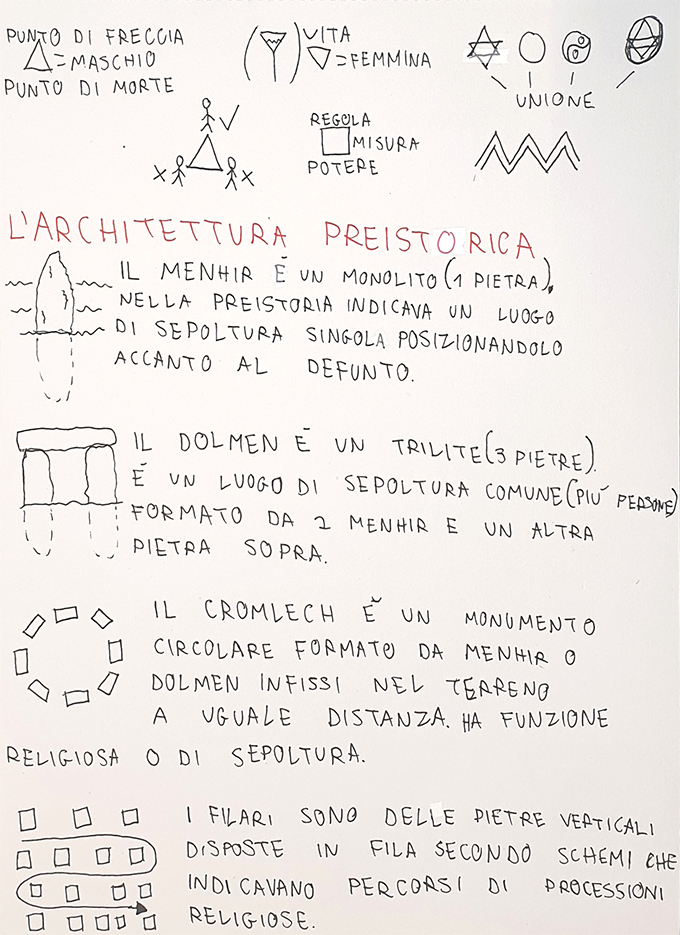 PUNTO DI FRECCIA
= MASCHIO
PUNTO DI MORTE
VITA
= FEMMINA
UNIONE
REGOLA
MISURA
POTERE
L'ARCHITETTURA PREISTORICA
IL MENHIR È UN MONOLITO (1 PIETRA),
NELLA PREISTORIA INDICAVA UN LUOGO
DI SEPOLTURA SINGOLA POSIZIONANDOLO
ACCANTO AL DEFUNTO.
IL DOLMEN È UN TRILITE (3 PIETRE).
È UN LUOGO DI SEPOLTURA COMUNE (PIÙ PERSONE)
FORMATO DA 2 MENHIR E UN ALTRA
PIETRA SOPRA.
IL CROMLECH È UN MONUMENTO
CIRCOLARE FORMATO DA MENHIR O
DOLMEN INFISSI NEL TERRENO
A UGUALE DISTANZA. HA FUNZIONE
RELIGIOSA O DI SEPOLTURA.
I FILARI SONO DELLE PIETRE VERTICALI
DISPOSTE IN FILA SECONDO SCHEMI CHE
INDICAVANO PERCORSI DI PROCESSIONI
RELIGIOSE.